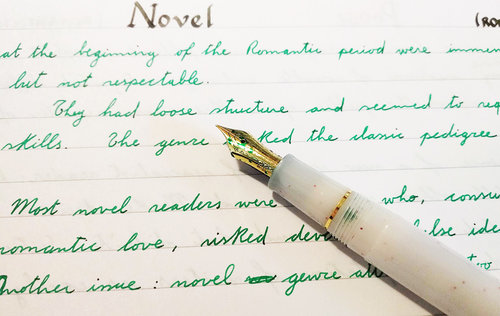 Novel
at the beginning of the Romantic period were
but not respectable.
They had loose structure and seemed to
skills. The genre the classic pedigree
Most novel readers were who,
romantic love, risked ideas
Another issue : novel genre